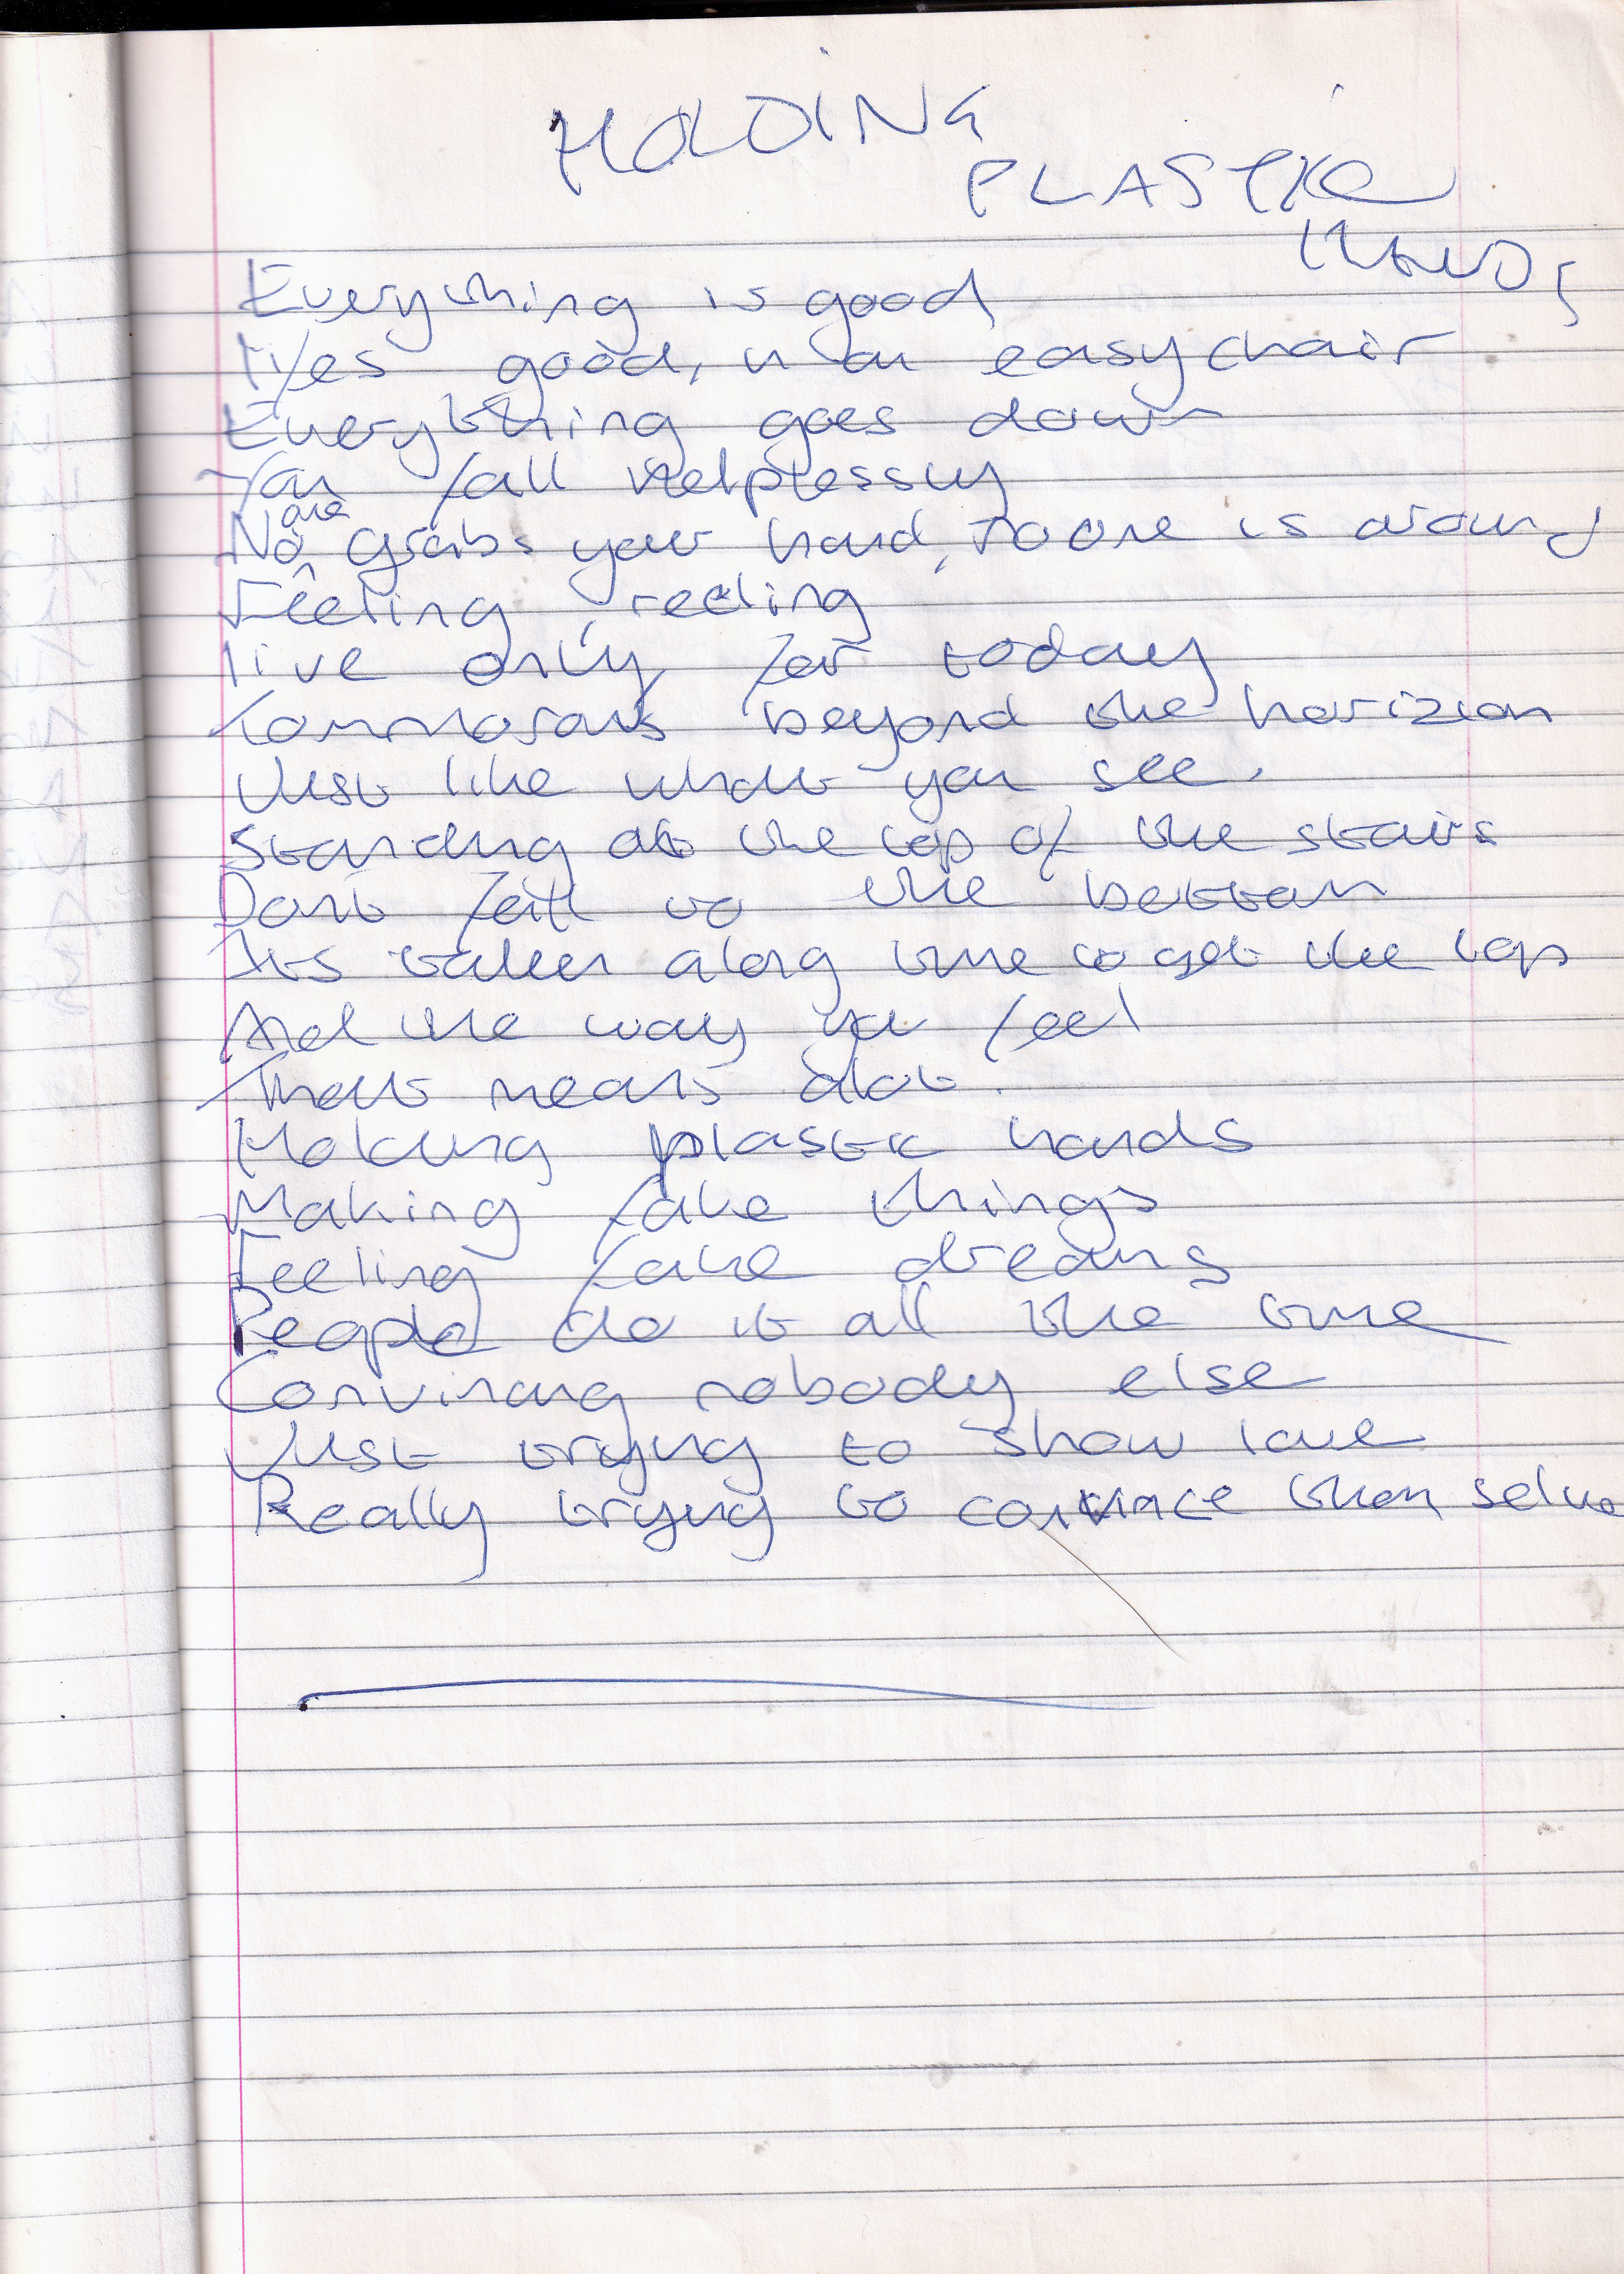 HOLDING
PLASTIC
HANDS
Everything is good
lifes good, in an easy chair
Everything goes down
You fall helplessly
No one grabs your hand, no one is around
Feeling, reeling
live only for today
Tommorows beyond the horizion
Just like what you see.
Standing at the top of the stairs
Dont fall to the bottom
Its taken along time to get the top
And the way you feel
That means alot.
Holding plastic hands
Making fake things
Feeling fake dreams
People do it all the time
Convincing nobody else
Just trying to show love
Really trying to convince them selve